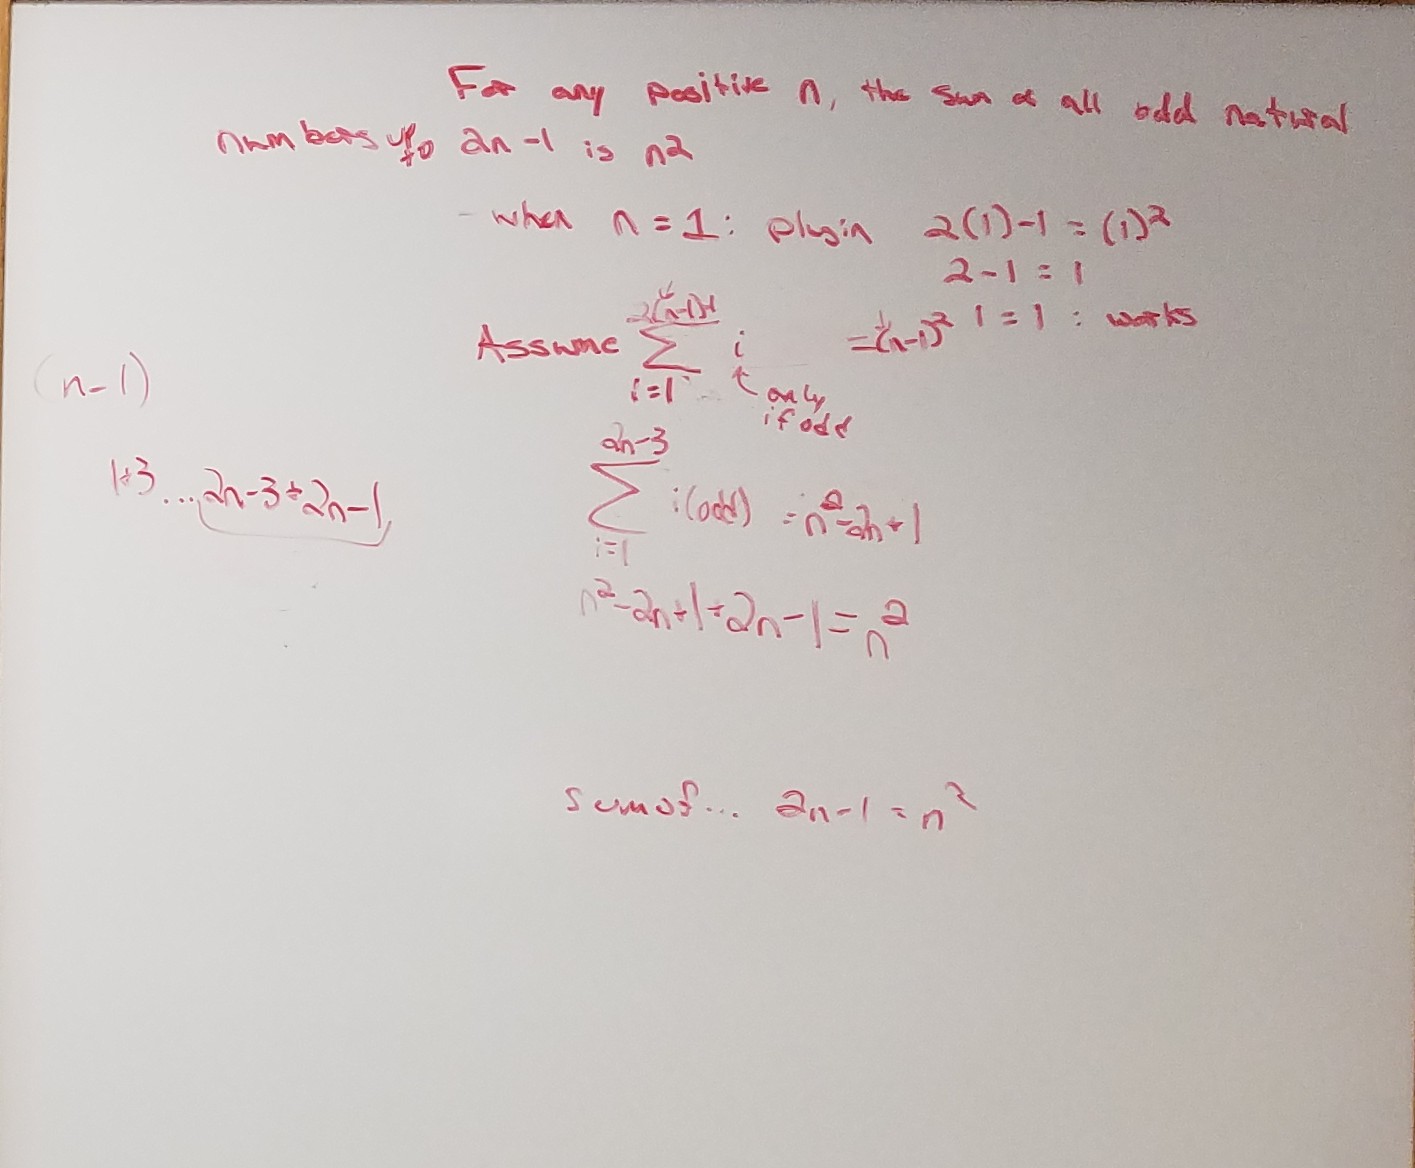 For any positive n, the sum of all odd natural
numbers up to 2n-1 is n²
- when n = 1: plugin 2(1)-1 = (1)²
2-1 = 1
1 = 1 : works
Assume ∑ i = (n-1)²
2(n-1)-1
i=1
only
if odd
(n-1)
1+3...2n-3+2n-1
2n-3
∑ i(odd) = n²-2n+1
i=1
n²-2n+1+2n-1 = n²
sum of... 2n-1 = n²